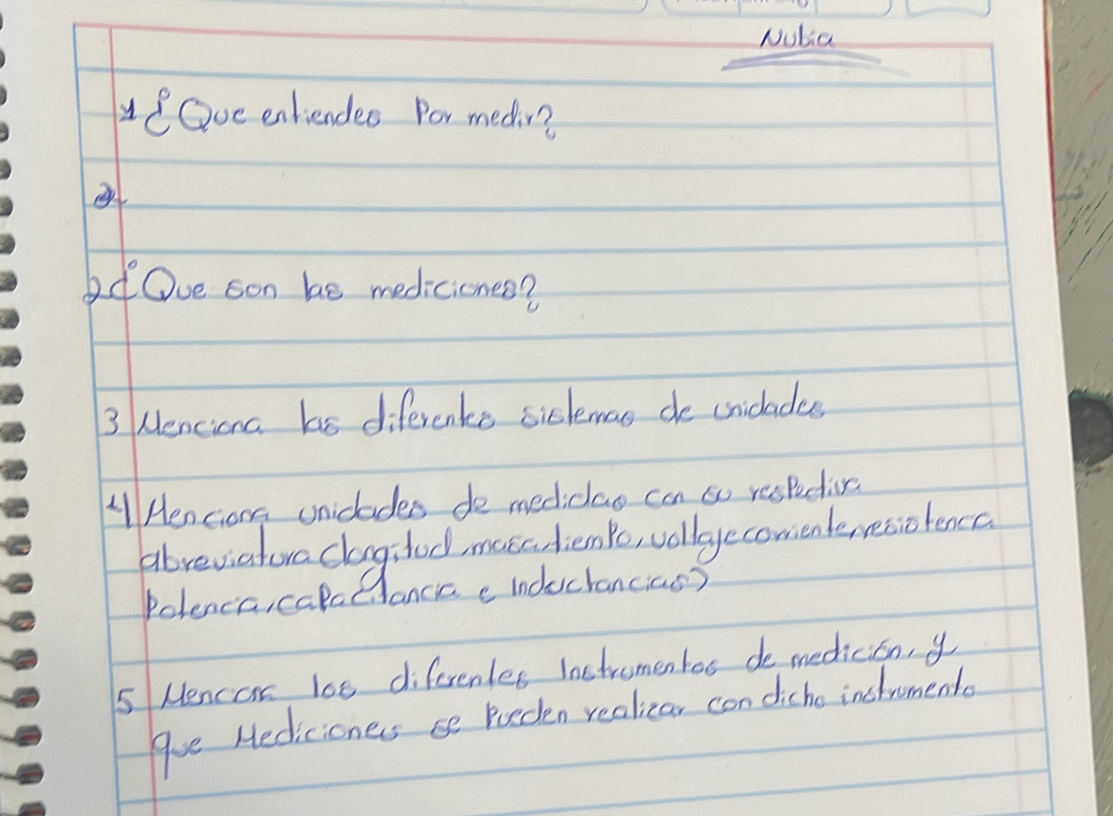 Nubia
1 ¿Que entiendes Por medir?
2
2 ¿Que son las mediciones?
3 Menciona los diferentes sistemas de unidades
4 Menciona unidades de medidas con su respectiva
abreviatura (longitud, masa, tiempo, voltaje corriente, resistenca
Potenca, capacitancia e inductancias)
5 Mencona los diferentes Instrumentos de medición, y
que Mediciones se Pueden realizar con dicho instrumento